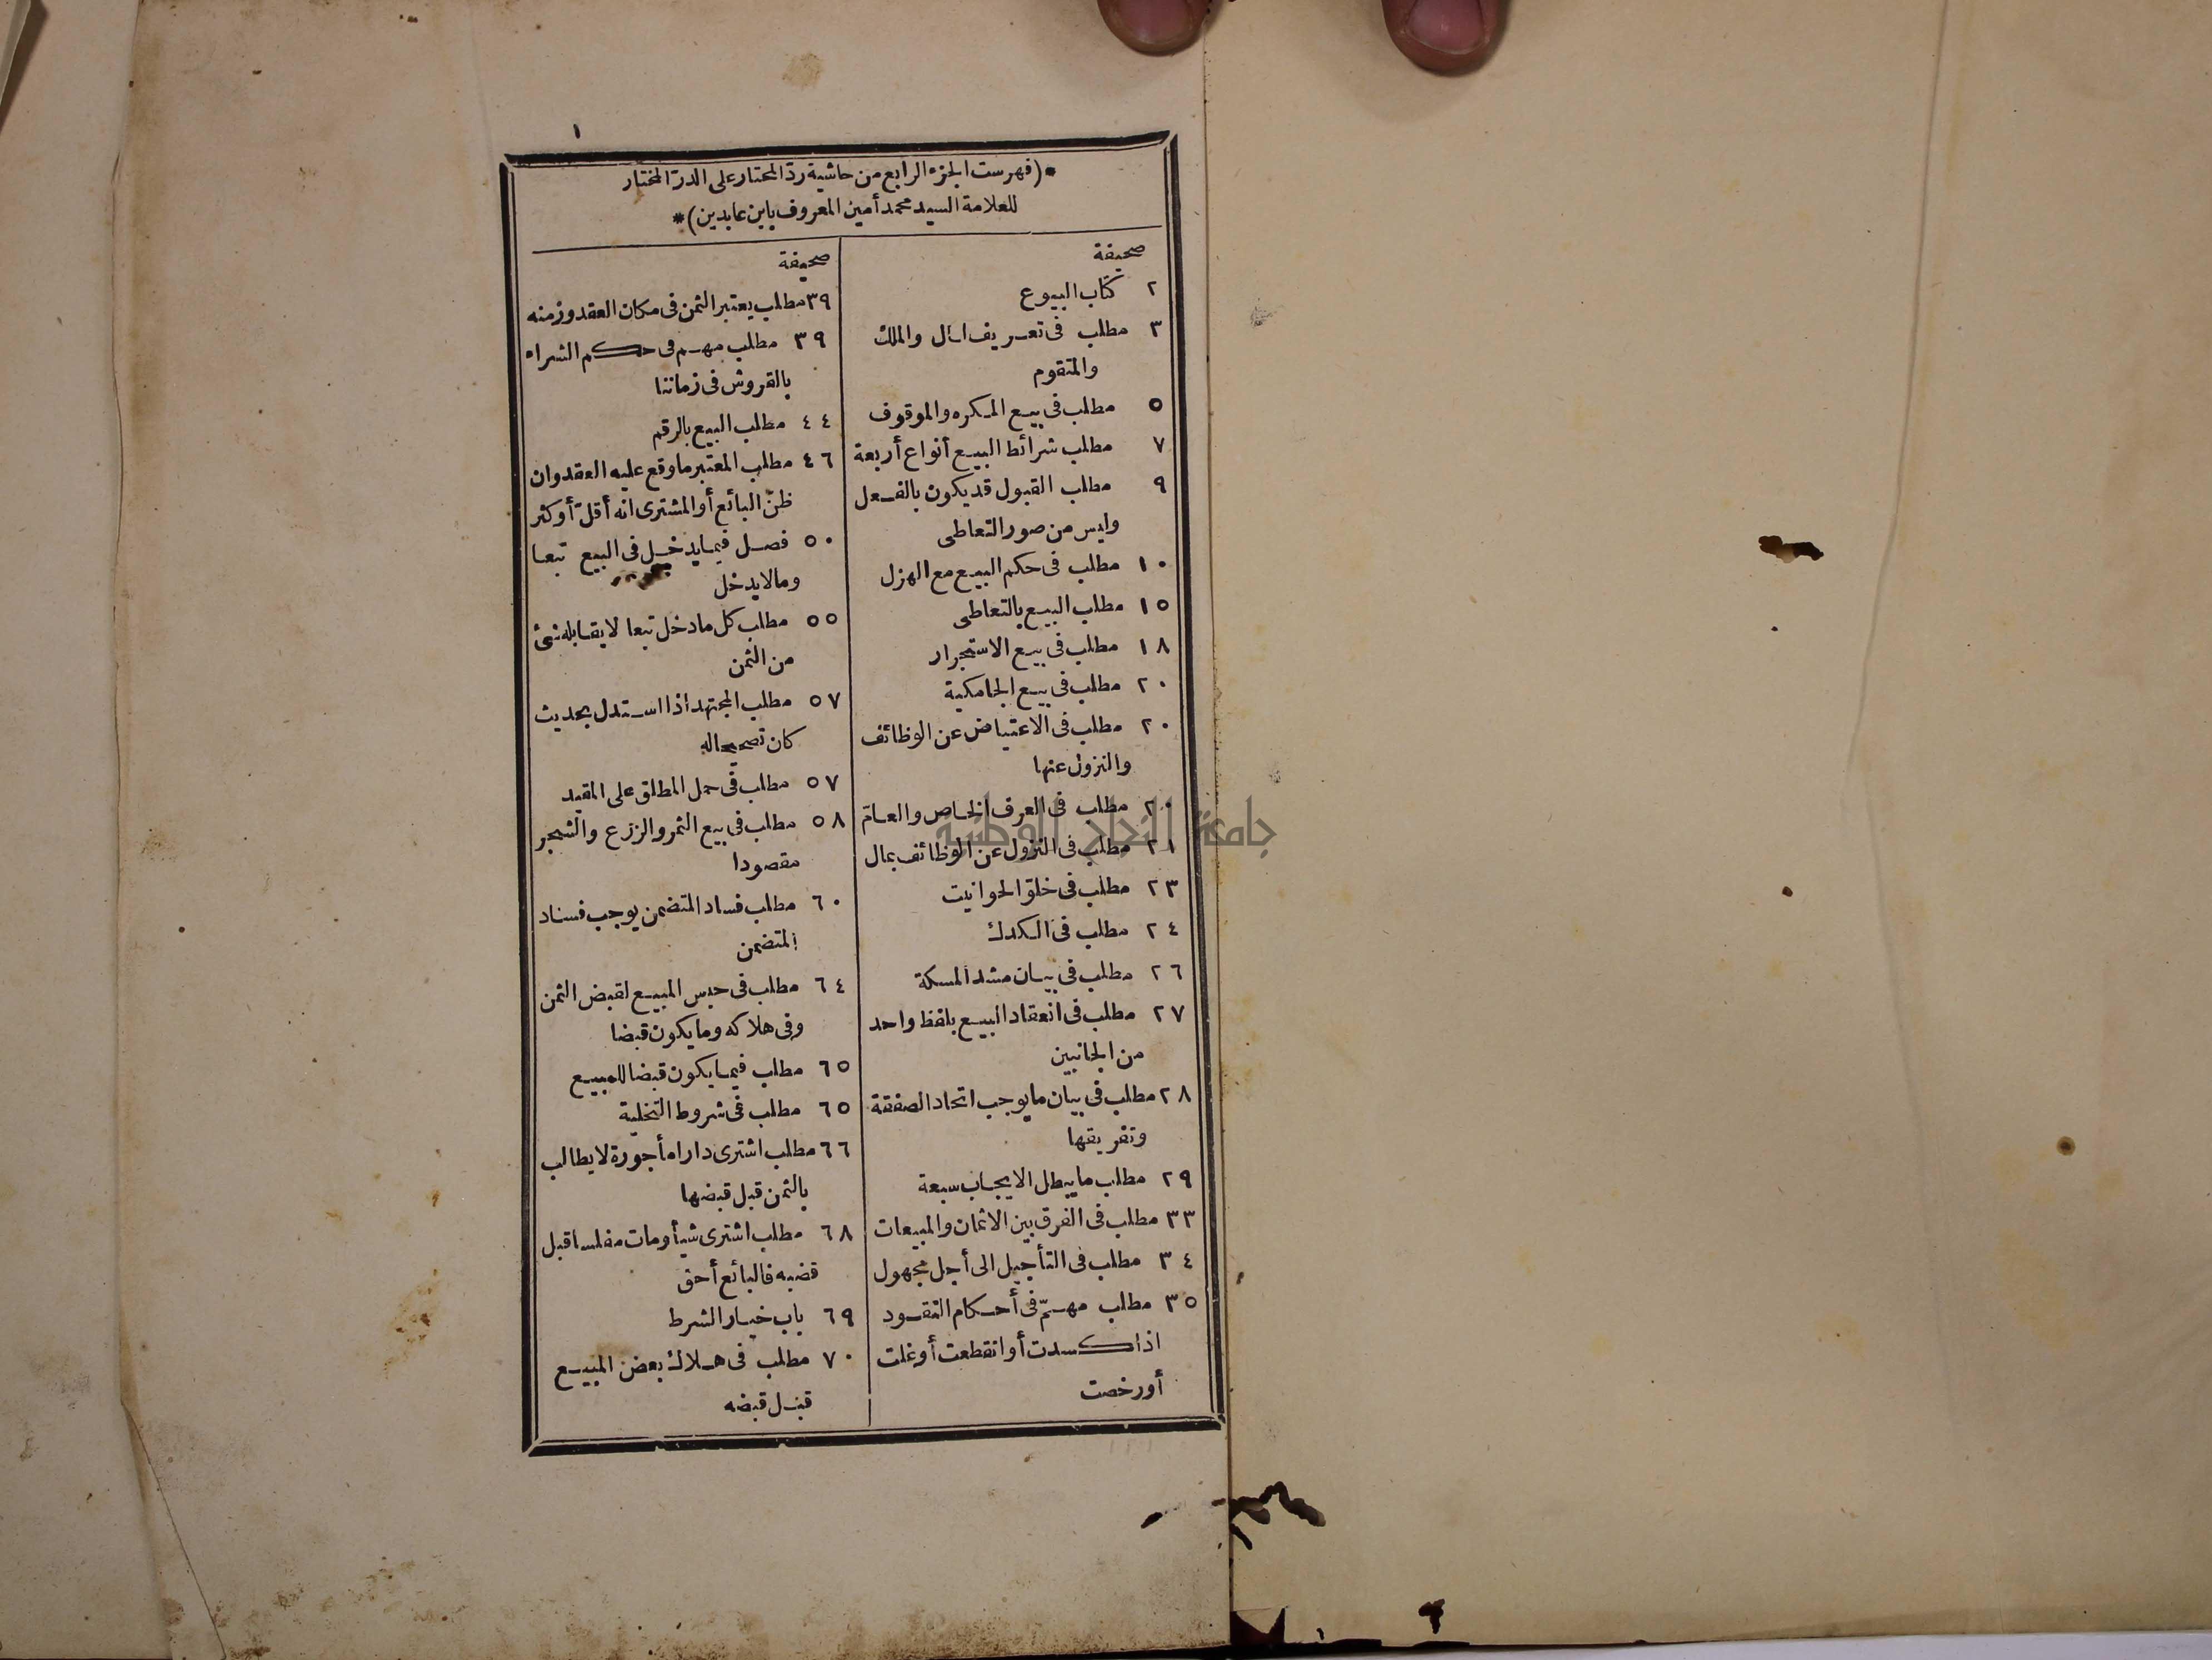 ١
*(فهرست الجزء الرابع من حاشية ردّ المحتار على الدرّ المختار
للعلامة السيد محمد أمين المعروف بابن عابدين)*
صحيفة
٢ كتاب البيوع
٣ مطلب في تعريف المال والملك
والمتقوم
٥ مطلب في بيع المكره والموقوف
٧ مطلب شرائط البيع أنواع أربعة
٩ مطلب القبول قد يكون بالفعل
وليس من صور التعاطى
١٠ مطلب فى حكم البيع مع الهزل
١٥ مطلب البيع بالتعاطى
١٨ مطلب فى بيع الاستجرار
٢٠ مطلب فى بيع الجامكية
٢٠ مطلب فى الاعتياض عن الوظائف
والنزول عنها
٢٠ مطلب فى العرف الخاص والعامّ
٢١ مطلب فى النزول عن الوظائف بمال
٢٣ مطلب فى خلوّ الحوانيت
٢٤ مطلب فى الكدك
٢٦ مطلب فى بيان مشد المسكة
٢٧ مطلب فى انعقاد البيع بلفظ واحد
من الجانبين
٢٨ مطلب فى بيان ما يوجب اتحاد الصفقة
وتفريقها
٢٩ مطلب ما يبطل الايجاب سبعة
٣٣ مطلب فى الفرق بين الاثمان والمبيعات
٣٤ مطلب فى التأجيل الى أجل مجهول
٣٥ مطلب مهمّ فى أحكام النقود
اذا كسدت أو انقطعت أو غلت
أو رخصت
صحيفة
٣٩ مطلب يعتبر الثمن فى مكان العقد وزمنه
٣٩ مطلب مهم فى حكم الشراء
بالقروش فى زماننا
٤٤ مطلب البيع بالرقم
٤٦ مطلب المعتبر ما وقع عليه العقد وان
ظنّ البائع أو المشترى انه أقلّ أو كثر
٥٠ فصل فيما يدخل فى البيع تبعا
وما لا يدخل
٥٥ مطلب كل ما دخل تبعا لا يقابله شئ
من الثمن
٥٧ مطلب المجتهد اذا استدل بحديث
كان تصحيحا له
٥٧ مطلب فى حمل المطلق على المقيد
٥٨ مطلب فى بيع الثمر والزرع والشجر
مقصودا
٦٠ مطلب فساد المتضمن يوجب فساد
المتضمن
٦٤ مطلب فى حبس المبيع لقبض الثمن
وفى هلاكه وما يكون قبضا
٦٥ مطلب فيما يكون قبضا للمبيع
٦٥ مطلب فى شروط التخلية
٦٦ مطلب اشترى دارا مأجورة لا يطالب
بالثمن قبل قبضها
٦٨ مطلب اشترى شيأ ومات مفلسا قبل
قضبه فالبائع أحق
٦٩ باب خيار الشرط
٧٠ مطلب فى هلاك بعض المبيع
قبل قبضه
جامعة النجاح الوطنية